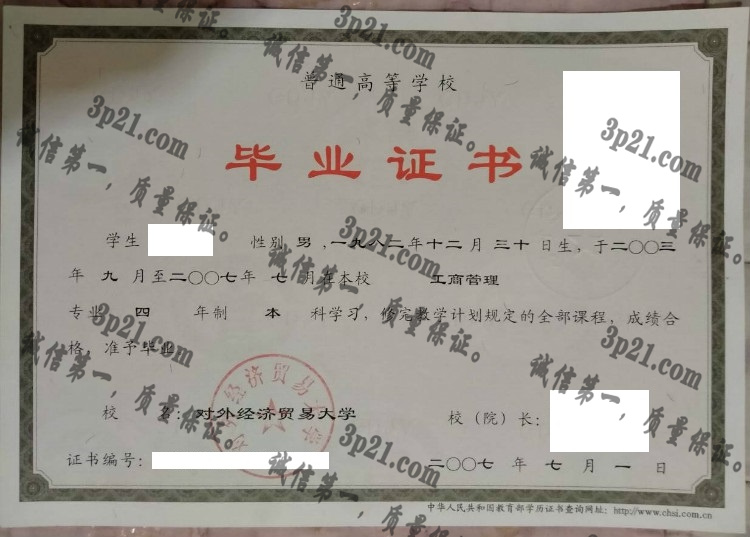 普通高等学校
毕业证书
学生 性别 男，一九八二年十二月三十日生，于二〇〇三
年 九 月至二〇〇七年 七 月在本校 工商管理
专业 四 年制 本 科学习，修完教学计划规定的全部课程，成绩合
格，准予毕业。
校 名：对外经济贸易大学 校（院）长：
证书编号： 二〇〇七 年 七 月 一 日
中华人民共和国教育部学历证书查询网址：http://www.chsi.com.cn
对外经济贸易大学
3p21.com
诚信第一，质量保证。
3p21.com
诚信第一，质量保证。
3p21.com
诚信第一，质量保证。
3p21.com
诚信第一，质量保证。
3p21.com
诚信第一，质量保证。
3p21.com
诚信第一，质量保证。
3p21.com
诚信第一，质量保证。